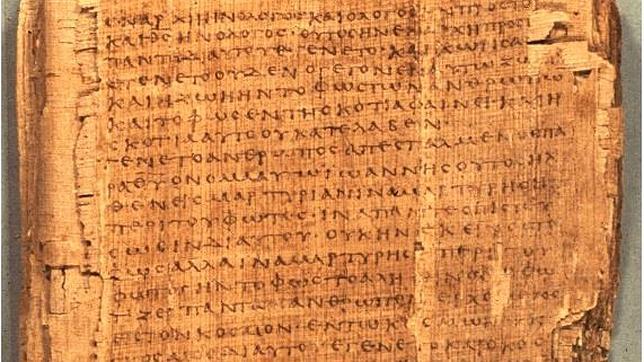 ΕΝ ΑΡΧΗ ΗΝ Ο ΛΟΓΟΣ ΚΑΙ Ο ΛΟΓΟΣ ΗΝ ΠΡΟΣ ΤΟ
ΚΑΙ ΘΣ ΗΝ Ο ΛΟΓΟΣ · ΟΥΤΟΣ ΗΝ ΕΝ ΑΡΧΗ ΠΡΟΣ
ΠΑΝΤΑ ΔΙ ΑΥΤΟΥ ΕΓΕΝΕΤΟ · ΚΑΙ ΧΩΡΙΣ
ΕΓΕΝΕΤΟ ΟΥΔΕΝ Ο ΓΕΓΟΝΕΝ ΕΝ ΑΥΤΩ ΖΩ
ΚΑΙ Η ΖΩΗ ΗΝ ΤΟ ΦΩΣ ΤΩΝ ΑΝΘΡΩΠΩ
ΚΑΙ ΤΟ ΦΩΣ ΕΝ ΤΗ ΣΚΟΤΙΑ ΦΑΙΝΕΙ · ΚΑΙ Η
ΣΚΟΤΙΑ ΑΥΤΟ ΟΥ ΚΑΤΕΛΑΒΕΝ ·
ΕΓΕΝΕΤΟ ΑΝΘΡΩΠΟΣ ΑΠΕΣΤΑΛΜΕΝΟΣ ΠΑ
ΡΑ ΘΥ ΟΝΟΜΑ ΑΥΤΩ ΙΩΑΝΝΗΣ ΟΥΤΟΣ ΗΛ
ΘΕΝ ΕΙΣ ΜΑΡΤΥΡΙΑΝ ΙΝΑ ΜΑΡΤΥΡΗΣΗ
ΠΕΡΙ ΤΟΥ ΦΩΤΟΣ · ΙΝΑ ΠΑΝΤΕΣ ΠΙΣΤΕΥ
ΣΩΣΙΝ ΔΙ ΑΥΤΟΥ · ΟΥΚ ΗΝ ΕΚΕΙΝΟΣ ΤΟ
ΦΩΣ ΑΛΛΑ ΙΝΑ ΜΑΡΤΥΡΗΣΗ ΠΕΡΙ ΤΟΥ
ΦΩΤΟΣ ΗΝ ΤΟ ΦΩΣ ΤΟ ΑΛΗΘΙΝΟΝ Ο ΦΩ
ΤΙΖΕΙ ΠΑΝΤΑ ΑΝΘΡΩΠΟΝ ΕΡΧΟΜΕΝΟΝ
ΕΙΣ ΤΟΝ ΚΟΣΜΟΝ · ΕΝ ΤΩ ΚΟΣΜΩ ΗΝ
ΚΟΣΜΟΣ ΔΙ ΑΥΤΟΥ ΕΓΕΝΕΤΟ ΚΑΙ Ο ΚΟΣ